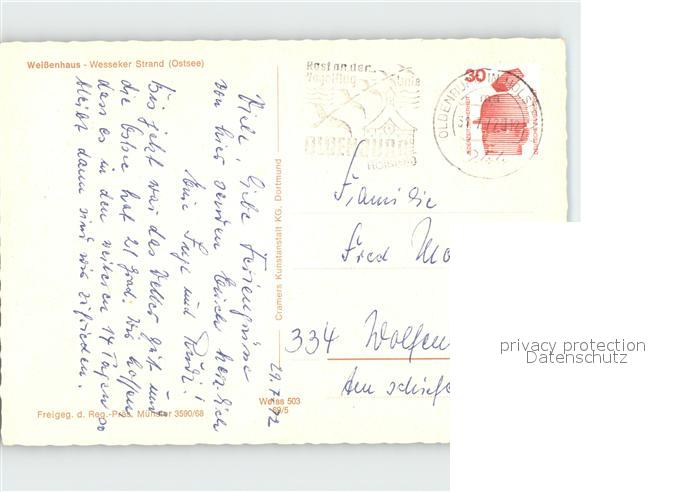 Weißenhaus - Wesseker Strand (Ostsee)
Viele, liebe Feriengrüsse
von hier senden Euch herzlich
Eure Inge und Rudi!
Bis jetzt war das Wetter gut und
die Ostsee hat 21 Grad. Wir hoffen
dass es in den weiteren 14 Tagen so
bleibt dann sind wir zufrieden.
29.7.72
Freigeg. d. Reg.-Präs. Münster 3590/68
Weiss 503
89/5
Cramers Kunstanstalt KG. Dortmund
Rast an der
Vogelflug Linie
OLDENBURG
HOLSTEIN
OLDENBURG IN HOLST
244
30
Familie
Fred Mo
334 Wolfen
Am schief
privacy protection
Datenschutz